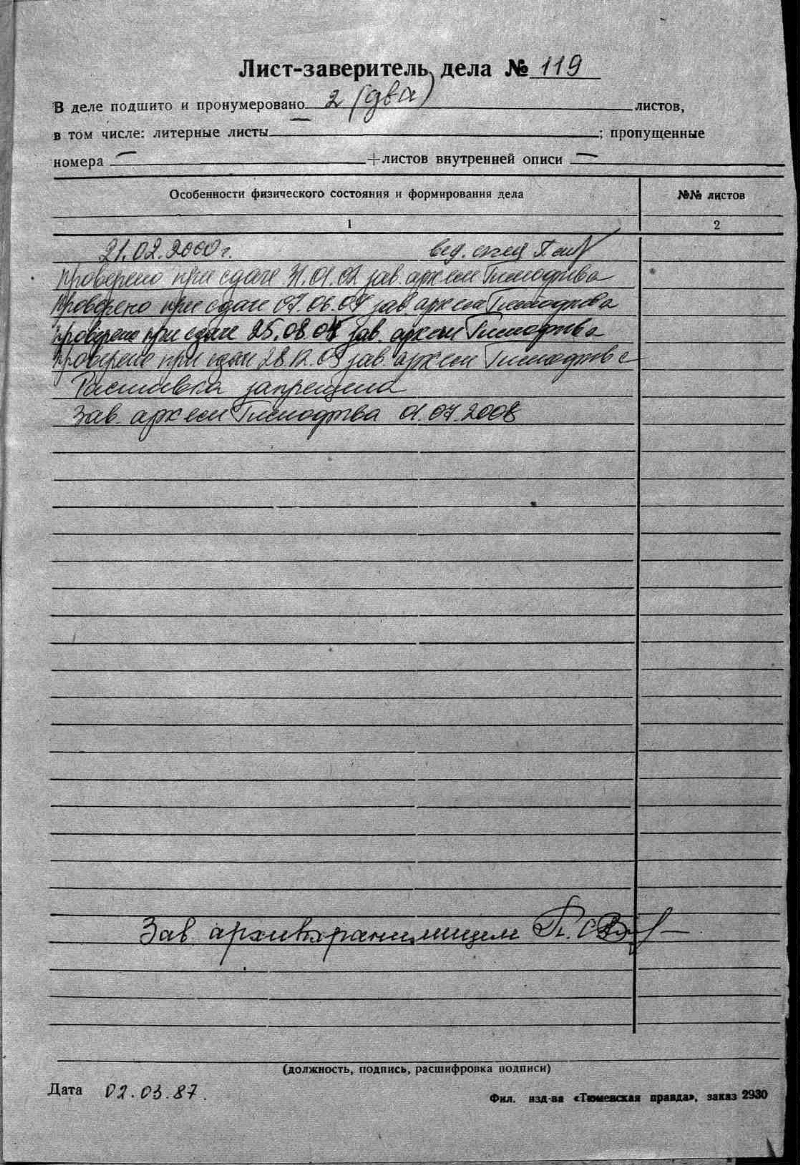 Лист-заверитель дела № 119
В деле подшито и пронумеровано 2 (два) листов,
в том числе: литерные листы — ; пропущенные
номера — +листов внутренней описи —
Особенности физического состояния и формирования дела №№ листов
1 2
21.02.2000г. вед. спец
проверено при сдаче 31.01.02 зав. арх-ем
проверено при сдаче 07.06.04 зав. арх-ем
проверено при сдаче 25.08.04 зав. арх-ем
проверено при сдаче 28.12.05 зав. арх-ем
Расшивка запрещена
Зав. арх-ем 01.07.2008
Зав. архивохранилищем
(должность, подпись, расшифровка подписи)
Дата 02.03.87.
Фил. изд-ва «Тюменская правда», заказ 2930